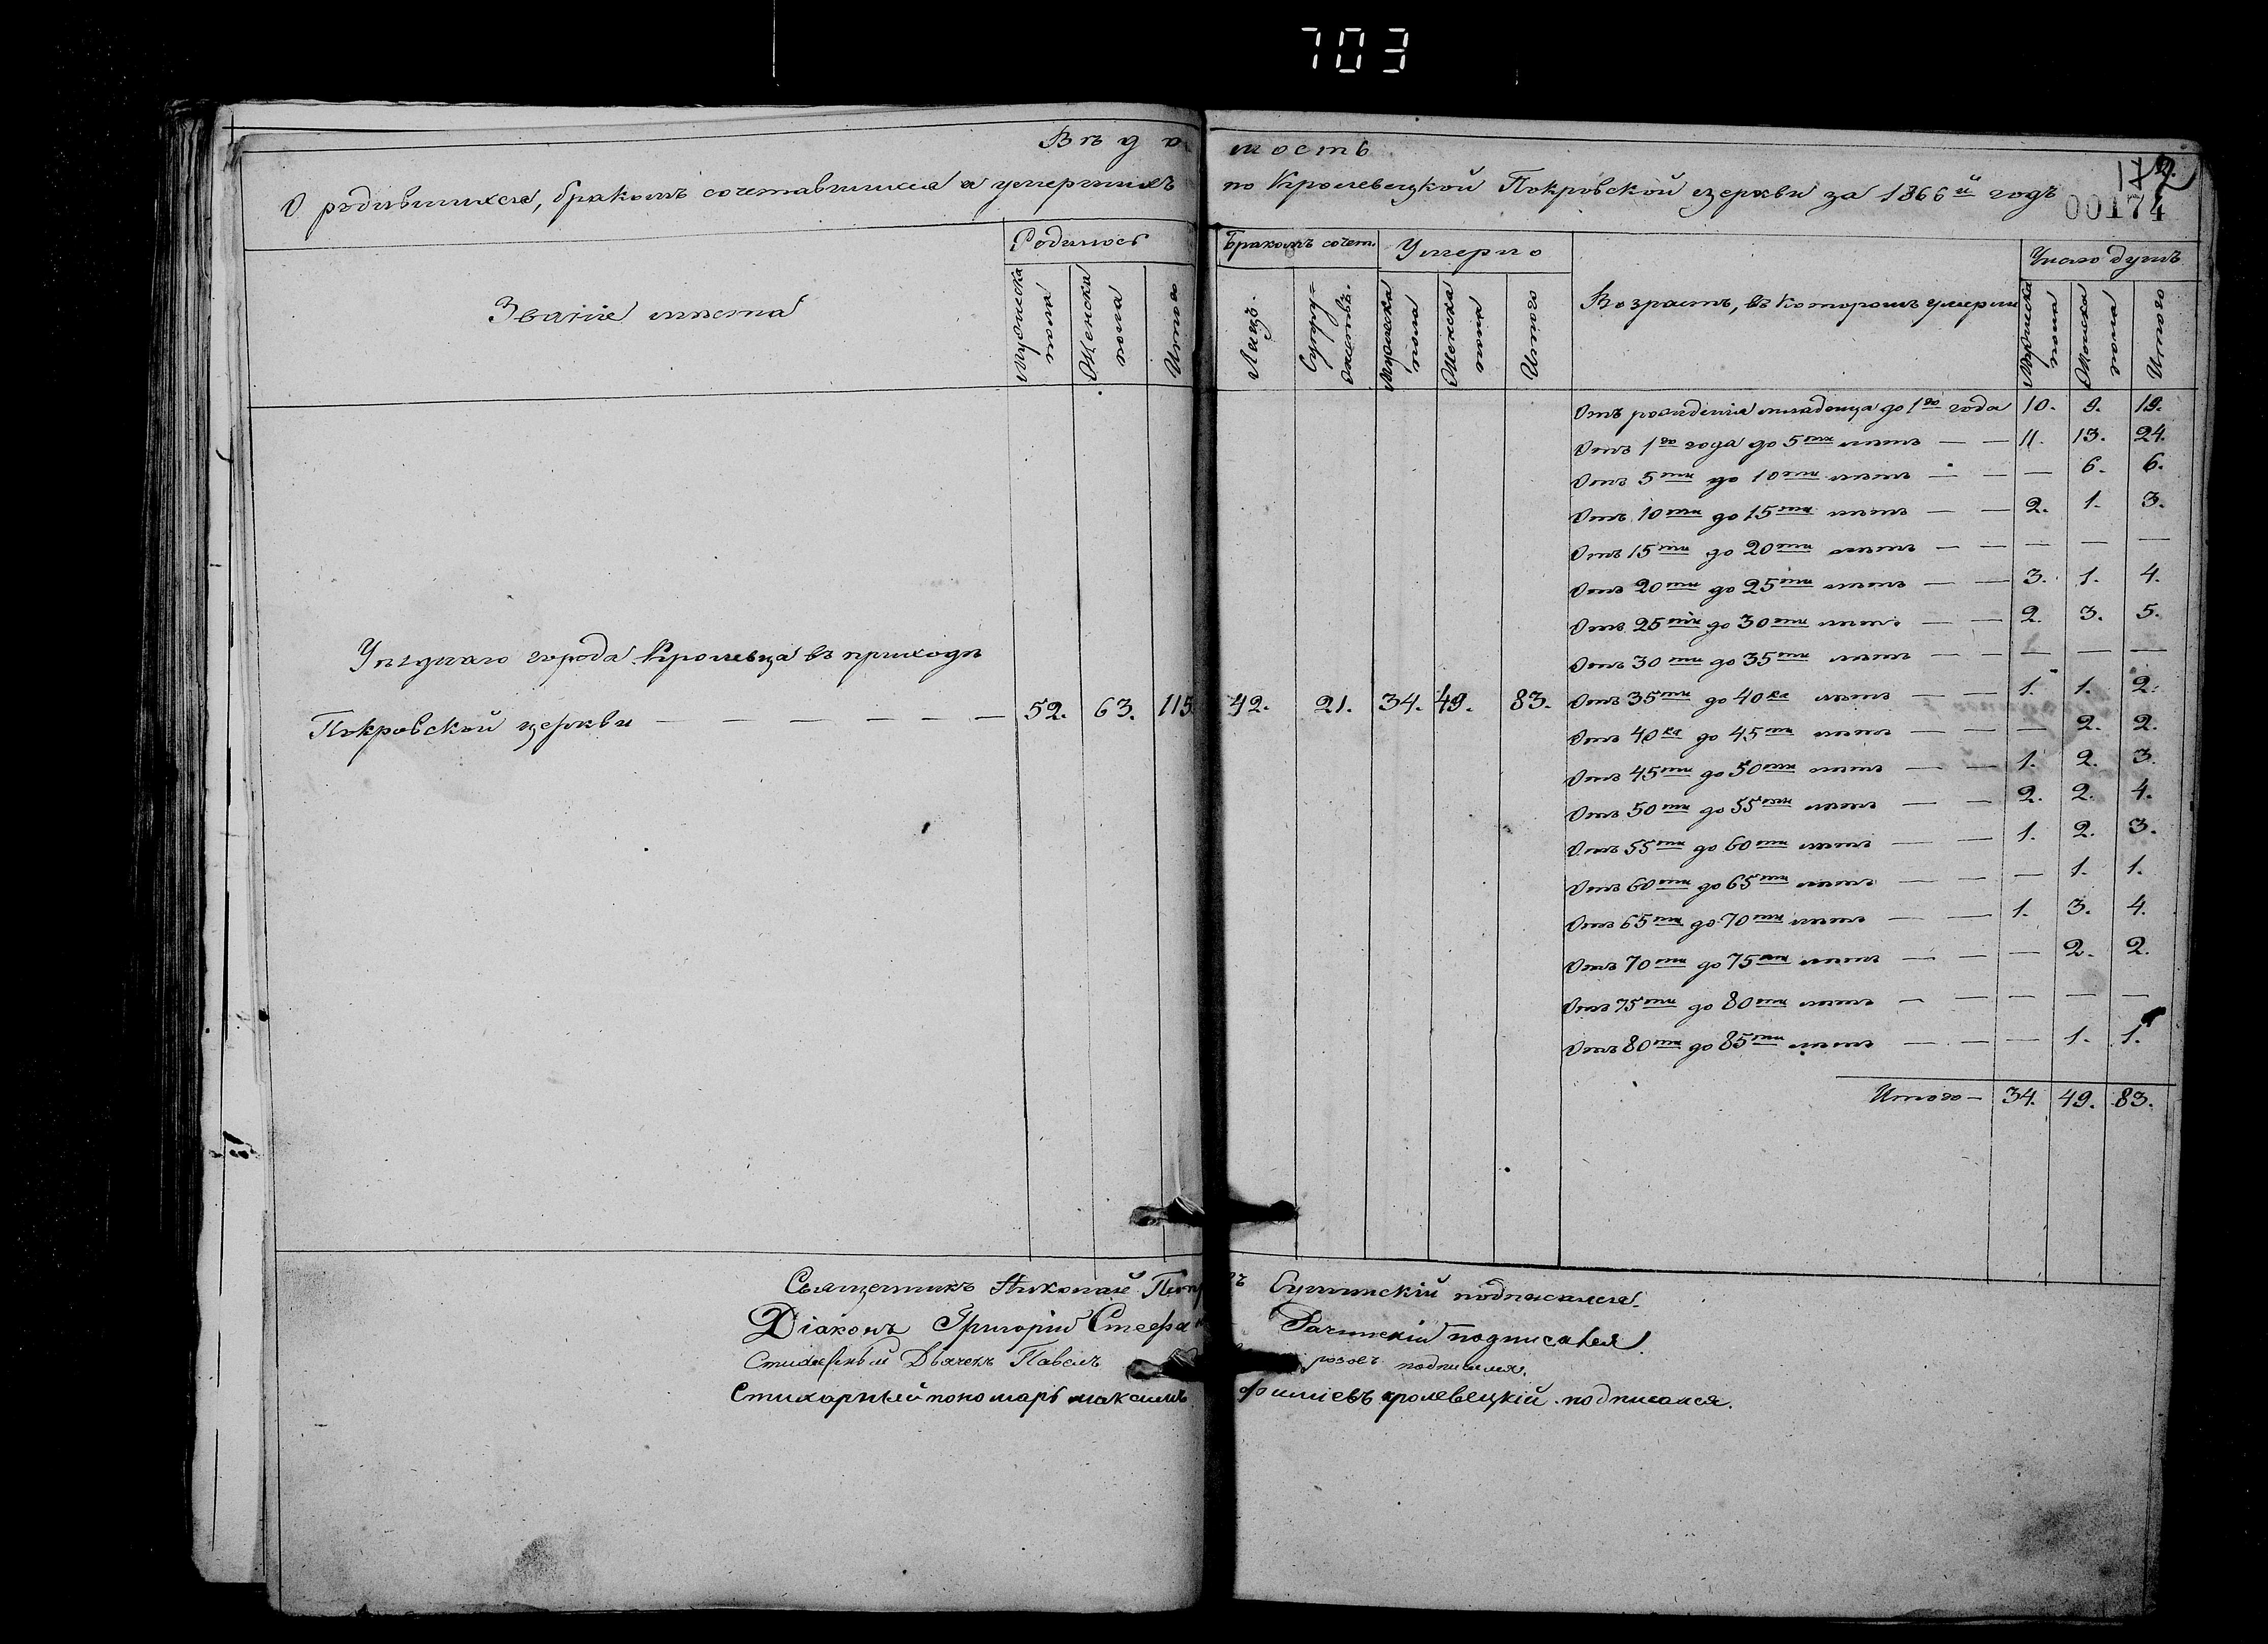 703
Вѣдомость
О родившихся, бракомъ сочетавшихся и умершихъ по Кролевецкой Покровской церкви за 1866й годъ
172
00174
Званіе мѣста
Родилось
Мужеска пола
Женска пола
Итого
Бракомъ сочет.
Лицъ.
Супружествъ.
Умерло
Мужеска пола
Женска пола
Итого
Возрастъ, въ которомъ умерли
Число душъ
Мужеска пола
Женска пола
Итого
Уѣзднаго города Кролевца въ приходѣ
Покровской церкви — — — — — — 52. 63. 115 42. 21. 34. 49. 83.
Отъ рожденія младенца до 1го года 10. 9. 19.
Отъ 1го года до 5ти лѣтъ — — 11. 13. 24.
Отъ 5ти до 10ти лѣтъ — — — 6. 6.
Отъ 10ти до 15ти лѣтъ — — 2. 1. 3.
Отъ 15ти до 20ти лѣтъ — — — — —
Отъ 20ти до 25ти лѣтъ — — 3. 1. 4.
Отъ 25ти до 30ти лѣтъ — — 2. 3. 5.
Отъ 30ти до 35ти лѣтъ — — — — —
Отъ 35ти до 40ка лѣтъ — — 1. 1. 2.
Отъ 40ка до 45ти лѣтъ — — — 2. 2.
Отъ 45ти до 50ти лѣтъ — — 1. 2. 3.
Отъ 50ти до 55ти лѣтъ — — 2. 2. 4.
Отъ 55ти до 60ти лѣтъ — — 1. 2. 3.
Отъ 60ти до 65ти лѣтъ — — — 1. 1.
Отъ 65ти до 70ти лѣтъ — — 1. 3. 4.
Отъ 70ти до 75ти лѣтъ — — — 2. 2.
Отъ 75ти до 80ти лѣтъ — — — — —
Отъ 80ти до 85ти лѣтъ — — — 1. 1.
Итого — 34. 49. 83.
Священникъ Николай подписался.
Діаконъ Григорій Стефа Рачинскій подписался.
Стихарный Дьячекъ Павелъ подписался.
Стихарный пономарь максимъ кролевецкій подписался.